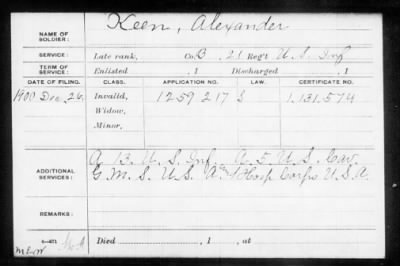 NAME OF SOLDIER: Keen, Alexander
SERVICE: Late rank, Co. B, 21 Reg't U.S. Inf
TERM OF SERVICE: Enlisted , 1 Discharged , 1
DATE OF FILING. CLASS. APPLICATION NO. LAW. CERTIFICATE NO.
1900 Dec. 26. Invalid, 1259217 S 1.131.574
Widow,
Minor,
ADDITIONAL SERVICES: A 13. U.S. Inf. A. 5. U.S. Cav.
G. M. S. U.S. A and Hosp Corps U.S.A.
REMARKS:
Died , 1 , at